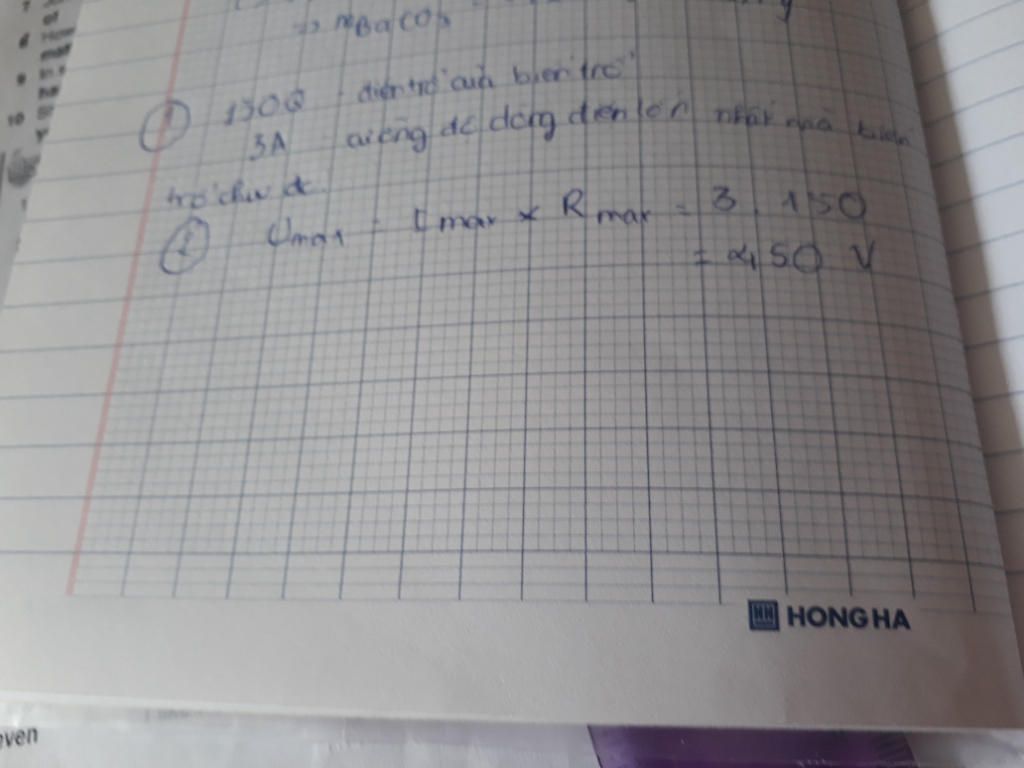 7
of
8 How
mat
9 In t
ha
10
y
=> mBaCO3
y
① 150Ω điện trở của biến trở
3A cường độ dòng điện lớn nhất mà biến
trở chịu đc
② Umax = Imax × Rmax = 3.150
= 450 V
HH HONG HA
even